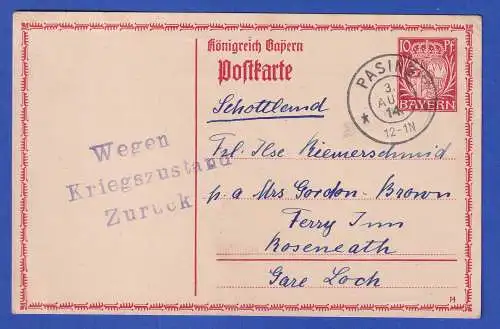 Königreich Bayern
Postkarte
10 Pf
BAYERN
PASING
3.
AUG
14
12-1N
Schottland
Wegen
Kriegszustand
Zurück
Frl. Ilse Riemerschmid
p. a Mrs Gordon-Brown
Ferry Inn
Roseneath
Gare Loch
14